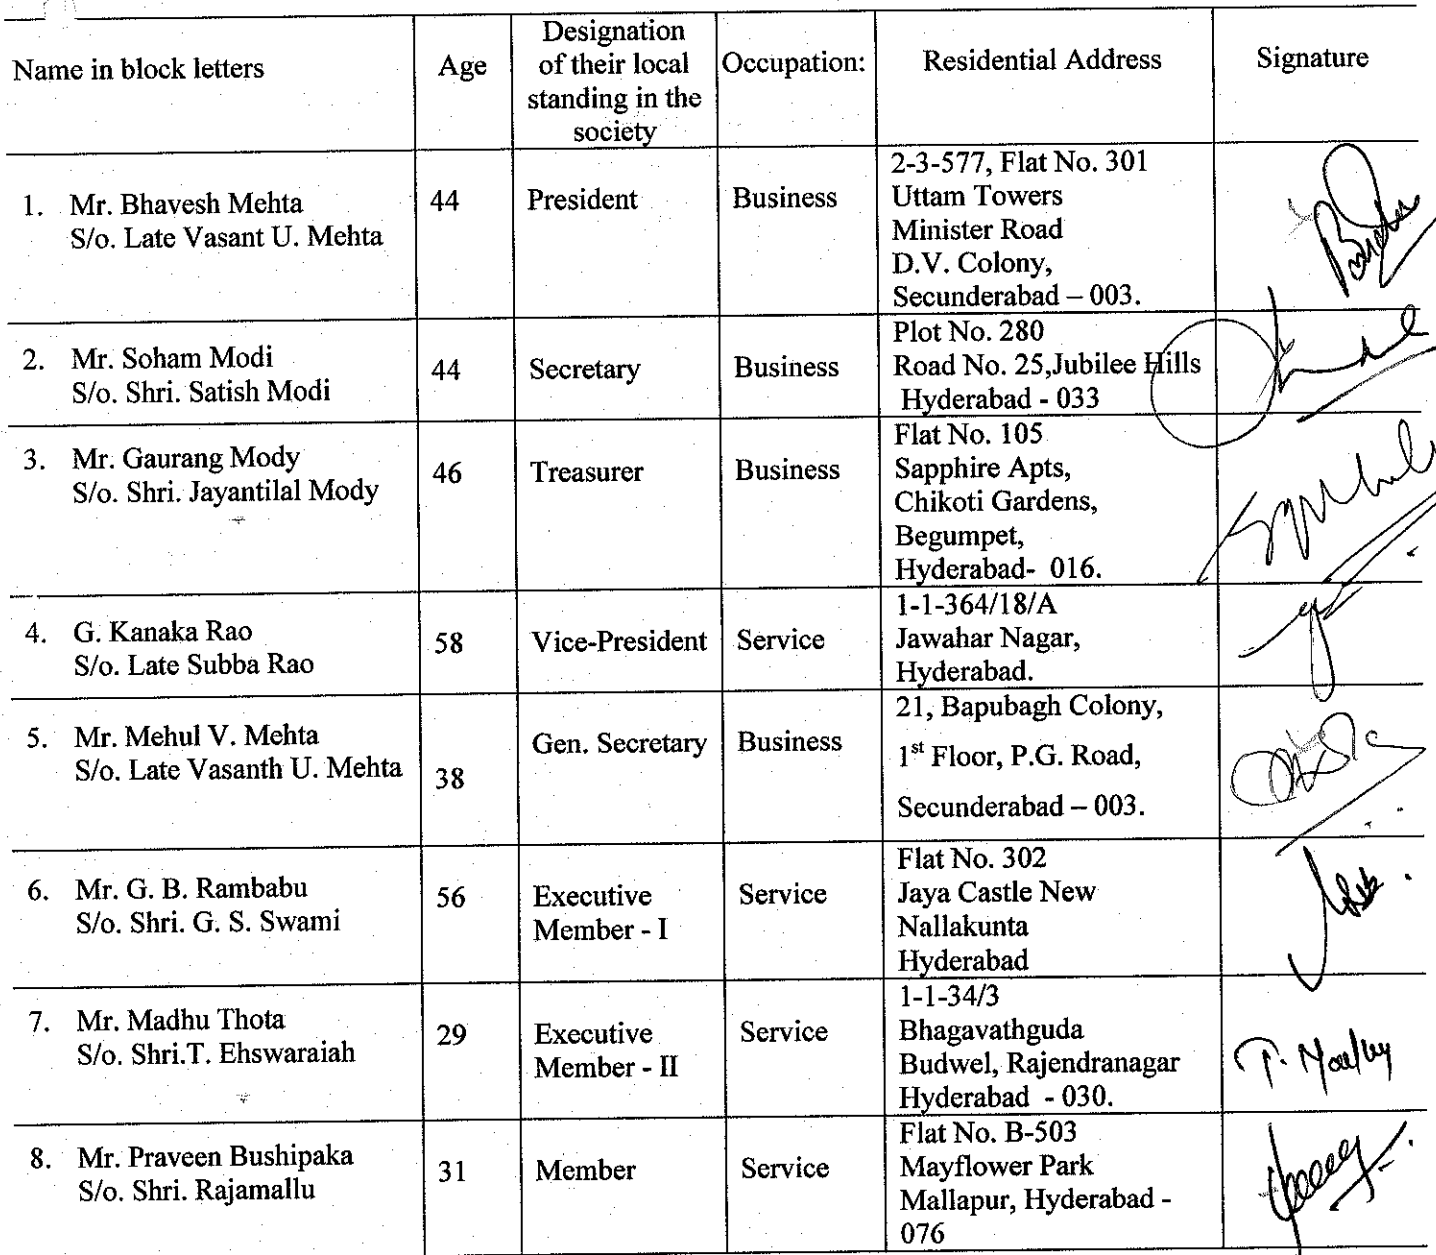 Name in block letters Age Designation of their local standing in the society Occupation: Residential Address Signature
1. Mr. Bhavesh Mehta
S/o. Late Vasant U. Mehta
44
President
Business
2-3-577, Flat No. 301
Uttam Towers
Minister Road
D.V. Colony,
Secunderabad – 003.
2. Mr. Soham Modi
S/o. Shri. Satish Modi
44
Secretary
Business
Plot No. 280
Road No. 25,Jubilee Hills
Hyderabad - 033
3. Mr. Gaurang Mody
S/o. Shri. Jayantilal Mody
46
Treasurer
Business
Flat No. 105
Sapphire Apts,
Chikoti Gardens,
Begumpet,
Hyderabad- 016.
4. G. Kanaka Rao
S/o. Late Subba Rao
58
Vice-President
Service
1-1-364/18/A
Jawahar Nagar,
Hyderabad.
5. Mr. Mehul V. Mehta
S/o. Late Vasanth U. Mehta
38
Gen. Secretary
Business
21, Bapubagh Colony,
1st Floor, P.G. Road,
Secunderabad – 003.
6. Mr. G. B. Rambabu
S/o. Shri. G. S. Swami
56
Executive
Member - I
Service
Flat No. 302
Jaya Castle New
Nallakunta
Hyderabad
7. Mr. Madhu Thota
S/o. Shri.T. Ehswaraiah
29
Executive
Member - II
Service
1-1-34/3
Bhagavathguda
Budwel, Rajendranagar
Hyderabad - 030.
8. Mr. Praveen Bushipaka
S/o. Shri. Rajamallu
31
Member
Service
Flat No. B-503
Mayflower Park
Mallapur, Hyderabad -
076